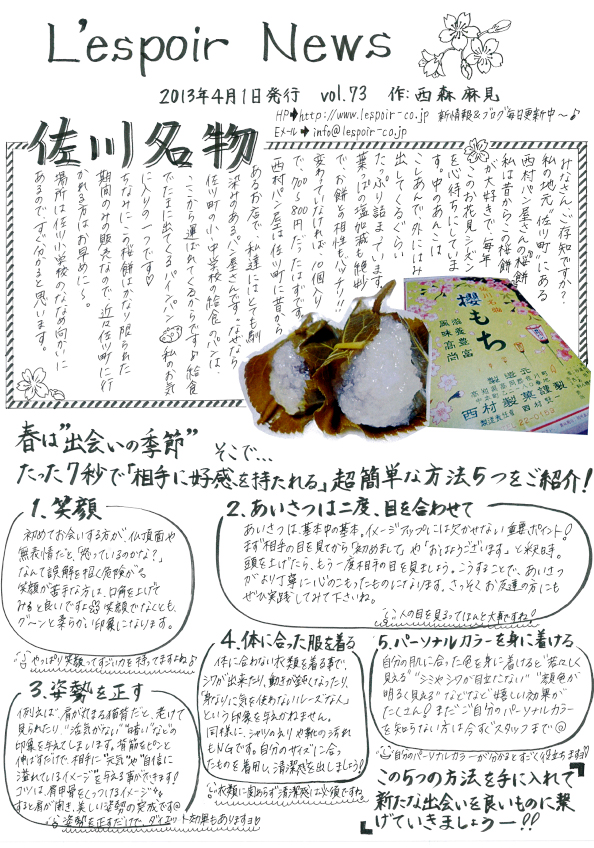 L'espoir News
2013年4月1日発行 vol.73 作:西森麻見
HP➡http://www.lespoir-co.jp 新情報&ブログ毎日更新中〜♪
Eメール➡info@lespoir-co.jp
佐川名物
みなさん、ご存知ですか?
私の地元"佐川町"にある
西村パン屋さんの桜餅
私は昔からこの桜餅
が大好きで、毎年
このお花見シーズン
を心待ちにしていま
す。中のあんこは
こしあんで、外にはみ
出してくるぐらい
たっぷり詰まっています。
葉っぱの塩加減も絶妙
でお餅との相性もバッチリ!!
変わっていなければ10個入り
で700〜800円だったはずです。
西村パン屋は佐川町に昔から
あるお店で、私達にはとても馴
染みのあるパン屋さんです。なぜなら
佐川町の小中学校の給食のパンは、
ここから運ばれてくるからです。給食
でたまに出てくるパインパン 私のお気
に入りの一つです♡
ちなみに、この桜餅はかなり限られた
期間のみの販売なので、近々佐川町に行
かれる方はお早めに〜。
場所は佐川小学校のななめ向かいに
あるのですぐ分かると思います。
櫻もち
滋養豊富
風味高尚
製造元
西村製菓謹製
春は"出会いの季節" そこで…
たった7秒で「相手に好感を持たれる」超簡単な方法5つをご紹介!
1.笑顔
初めてお会いする方が、仏頂面や
無表情だと、「怒っているのかな?」
なんて誤解を招く危険が
笑顔が苦手な方は、口角を上げて
みると良いですよ 笑顔でなくとも、
グ〜ンと柔らかい印象になります。
やっぱり笑顔ってすごい力を持ってますよね♪
2.あいさつは二度、目を合わせて
あいさつは、基本中の基本。イメージアップには欠かせない重要ポイント!
まず相手の目を見てから「初めまして」や「おはようございます。」と
頭を上げたら、もう一度相手の目を見ましょう。こうすることで、あいさつ
がより丁寧に心のこもったものになります。さっそくお友達の方にも
ぜひ実践してみて下さいね。
人の目を見るってほんと大事ですね!
3.姿勢を正す
例えば、肩が丸まる猫背だと、老けて
見られたり、"活気がない""暗い"などの
印象を与えてしまいます。背筋をピンと
伸ばすだけで、相手に"元気"や"自信に
溢れているイメージ"を与える事ができます!
コツは、肩甲骨をくっつけるイメージ
すると肩が開き、美しい姿勢の完成です
姿勢を正すだけで、ダイエット効果もありますョ
4.体に合った服を着る
体に合わない衣類を着る事で、
シワが出来たり、動きが鈍くなったり、
「身なりに気を使わないルーズな人」
という印象を与えかねません。
同様に、シャツのえりや靴の汚れ
もNGです。自分のサイズに合っ
たものを着用し、清潔感を出しましょう!
衣類に関わらず清潔感は必須ですね
5.パーソナルカラーを身に着ける
自分の肌に合った色を身に着けると"若々しく
見える""シミやシワが目立たない""顔色が
明るく見える"などなど嬉しい効果が
たくさん! まだご自分のパーソナルカラー
を知らない方は今すぐスタッフまで
自分のパーソナルカラーが分かるとすごく役立ちますョ
この5つの方法を手に入れて
新たな出会いを良いものに繋
げていきましょうー!!